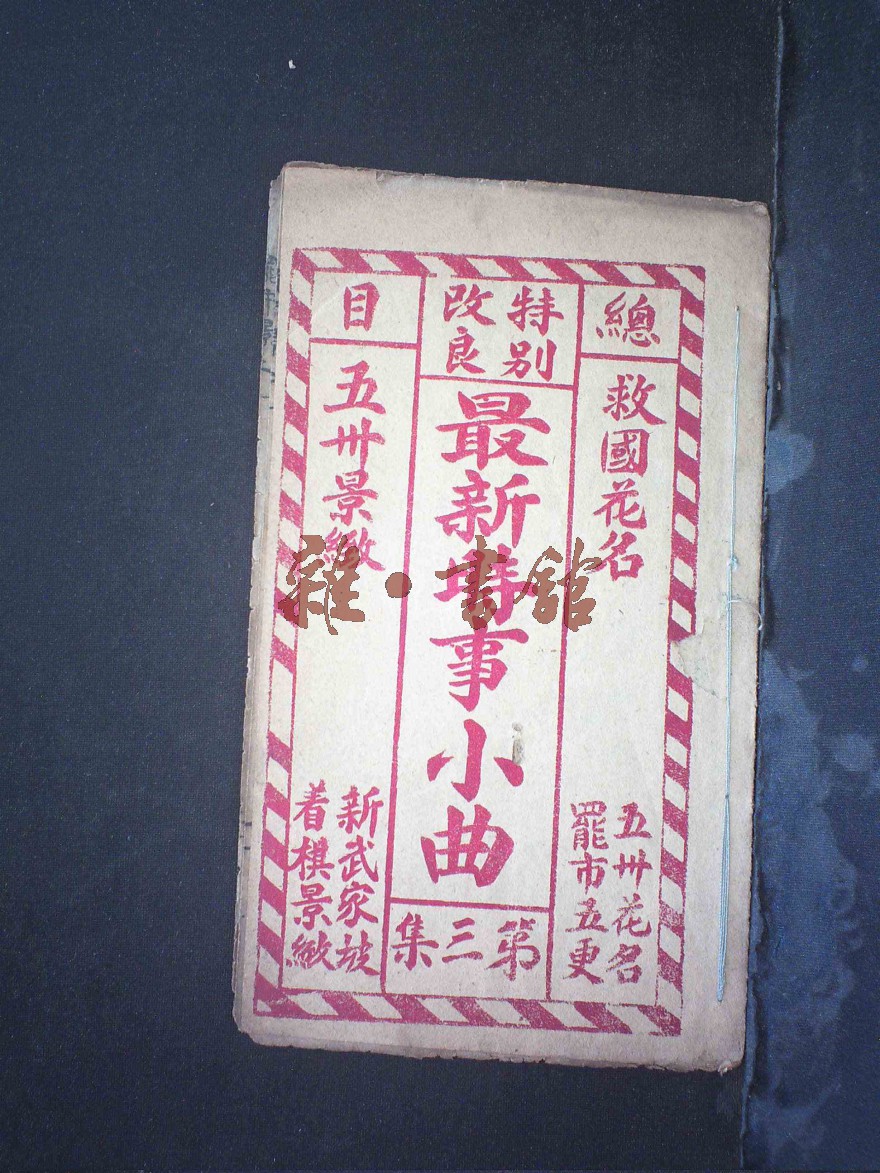 總
救國花名
五卅花名
罷市五更
特別
改良
最新時事小曲
第三集
目
五卅景緻
新武家坡
着棋景緻
雜·書館